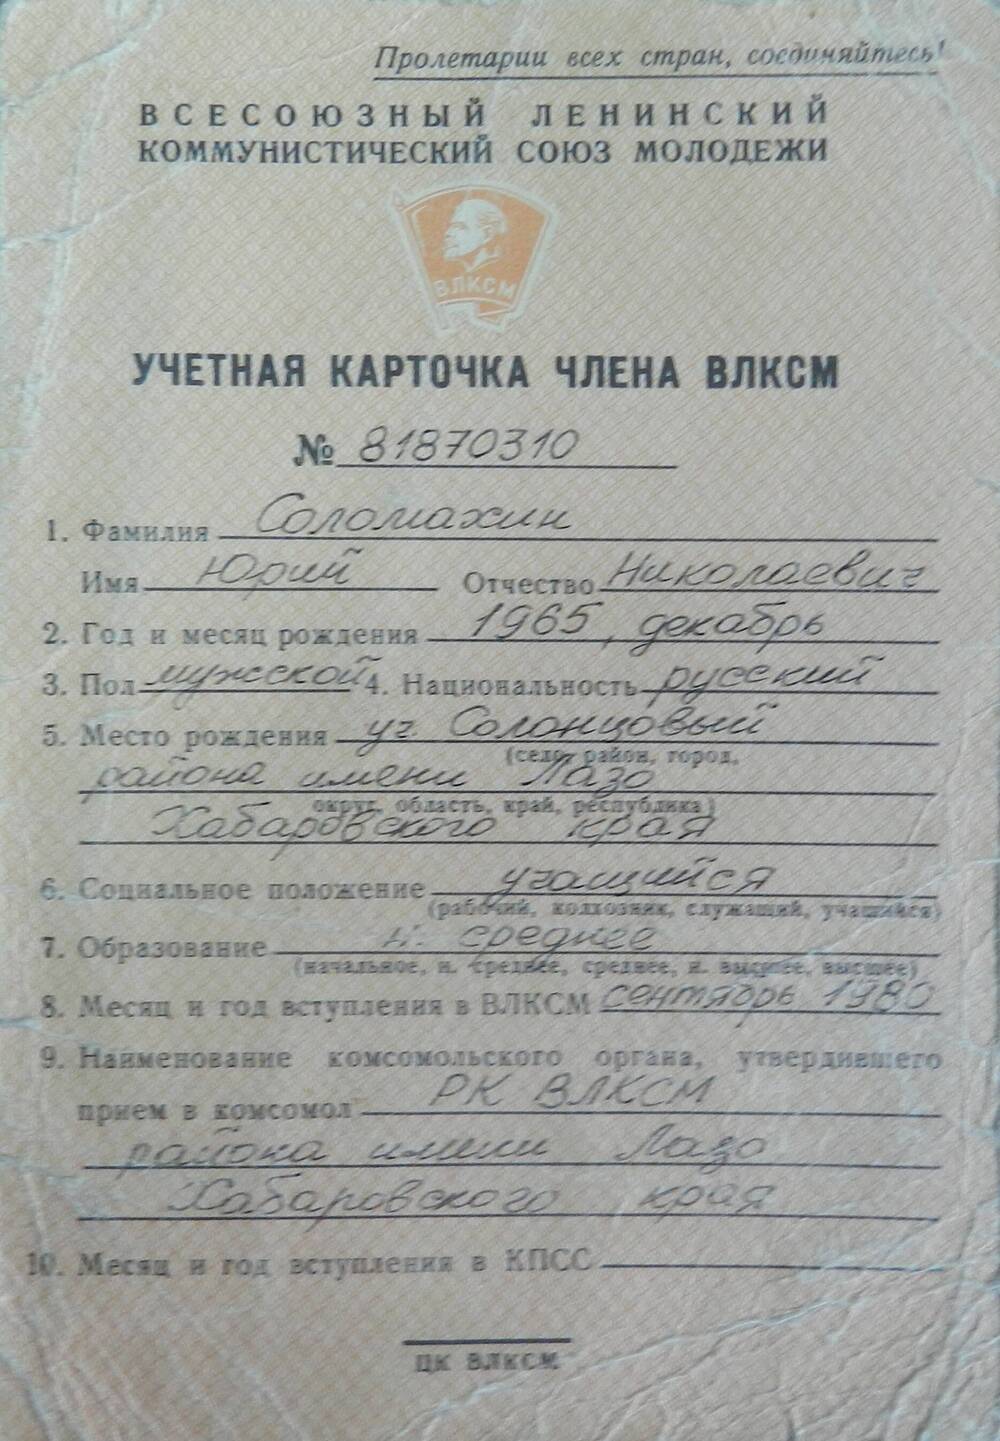 Пролетарии всех стран, соединяйтесь!
ВСЕСОЮЗНЫЙ ЛЕНИНСКИЙ
КОММУНИСТИЧЕСКИЙ СОЮЗ МОЛОДЕЖИ
ВЛКСМ
УЧЕТНАЯ КАРТОЧКА ЧЛЕНА ВЛКСМ
№ 81870310
1. Фамилия Соломахин
Имя Юрий Отчество Николаевич
2. Год и месяц рождения 1965, декабрь
3. Пол мужской 4. Национальность русский
5. Место рождения уч. Солонцовый
(село, район, город,
района имени Лазо
округ, область, край, республика)
Хабаровского края
6. Социальное положение учащийся
(рабочий, колхозник, служащий, учащийся)
7. Образование н. среднее
(начальное, н. среднее, среднее, н. высшее, высшее)
8. Месяц и год вступления в ВЛКСМ сентябрь 1980
9. Наименование комсомольского органа, утвердившего
прием в комсомол РК ВЛКСМ
района имени Лазо
Хабаровского края
10. Месяц и год вступления в КПСС
ЦК ВЛКСМ